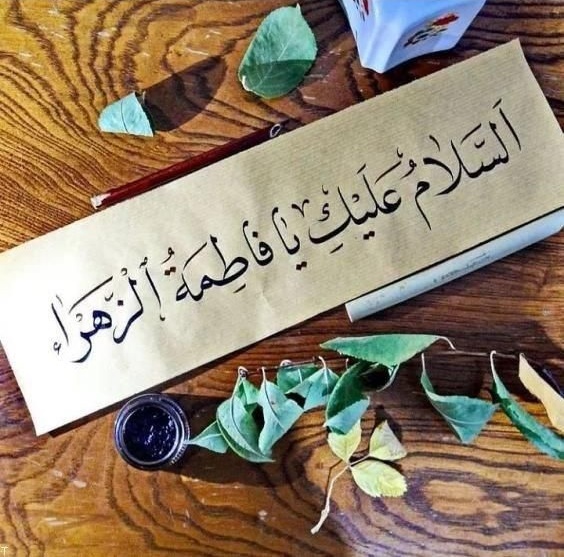 اَلسَّلامُ عَلَيْكِ يا فاطِمَةُ ٱلزَّهْراء